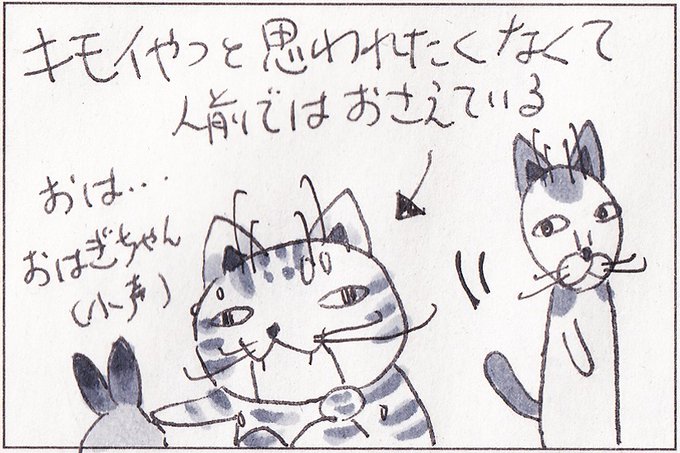 キモイやつと思われたくなくて
人前ではおさえている
おは…
おはぎちゃん
(小声)